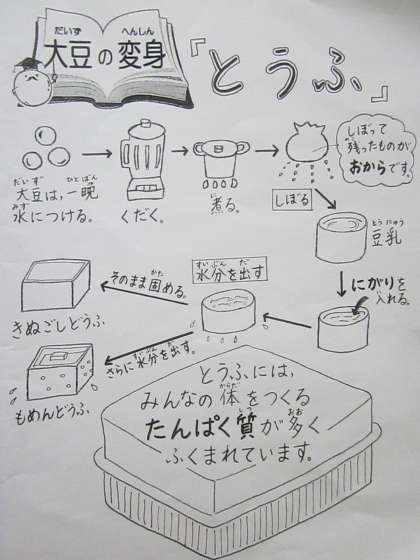 だいず へんしん
大豆の変身
『とうふ』
だいず ひとばん
大豆は、一晩
みず
水につける。
くだく。
に
煮る。
しぼる
しぼって
のこ
残ったものが
おからです。
とうにゅう
豆乳
にがりを
い
入れる。
すいぶん だ
水分を出す
かた
そのまま固める。
きぬごしどうふ
すいぶん だ
さらに水分を出す。
もめんどうふ
とうふには、
からだ
みんなの体をつくる
しつ おお
たんぱく質が多く
ふくまれています。